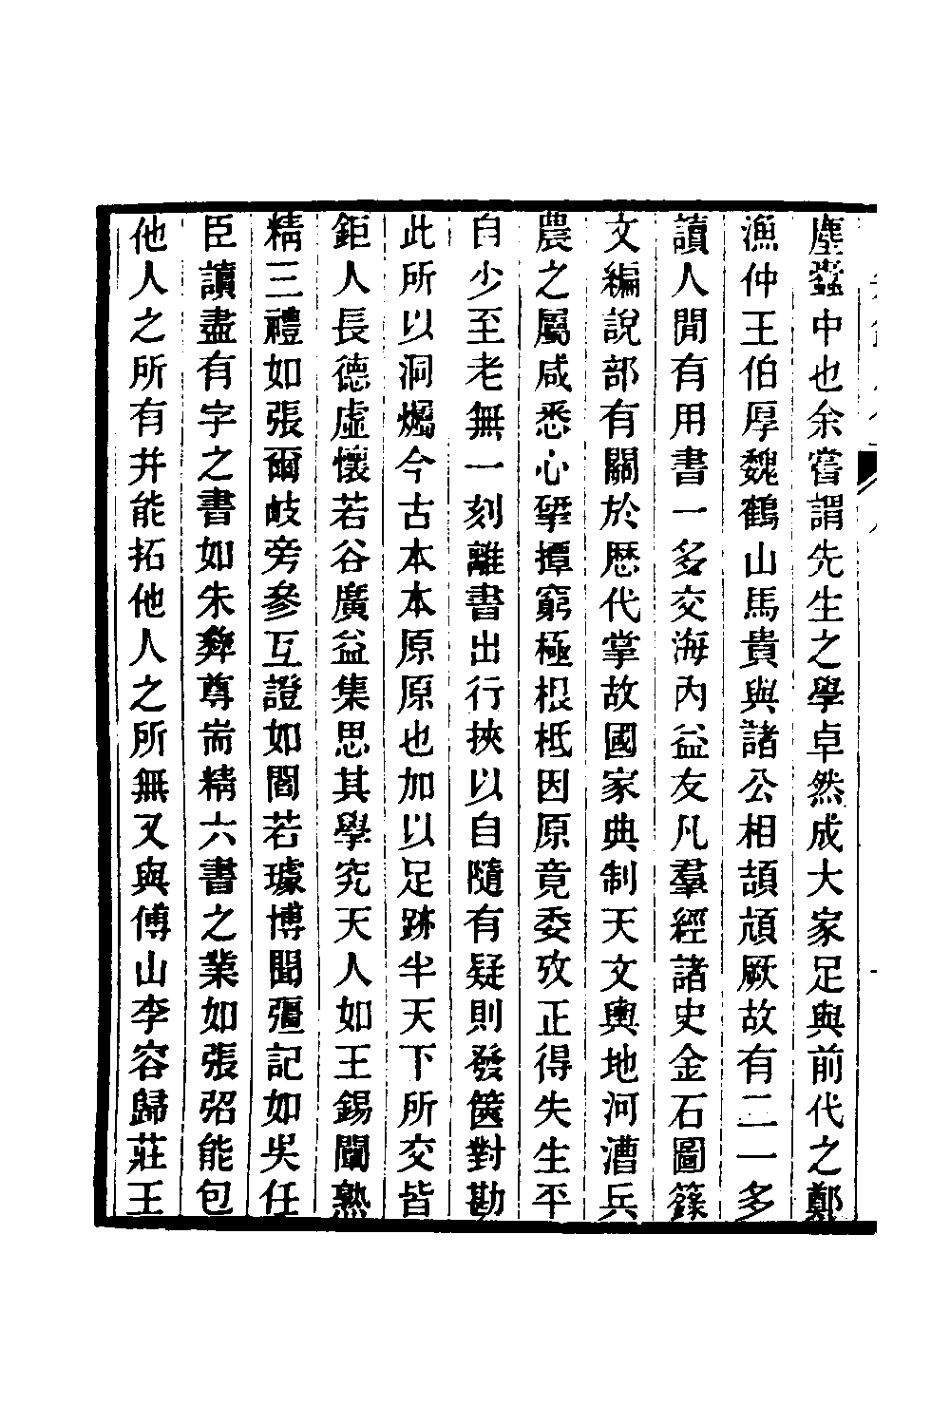 塵蠧中也余嘗謂先生之學卓然成大家足與前代之鄭
漁仲王伯厚魏鶴山馬貴與諸公相頡頏厥故有二一多
讀人閒有用書一多交海內益友凡羣經諸史金石圖籙
文編說部有關於歷代掌故國家典制天文輿地河漕兵
農之屬咸悉心擘撢窮極根柢因原竟委攷正得失生平
自少至老無一刻離書出行挾以自隨有疑則發篋對勘
此所以洞燭今古本本原原也加以足跡半天下所交皆
鉅人長德虛懷若谷廣益集思其學究天人如王錫闡熟
精三禮如張爾岐旁參互證如閻若璩博聞彊記如吳任
臣讀盡有字之書如朱彝尊耑精六書之業如張弨能包
他人之所有并能拓他人之所無又與傅山李容歸莊王